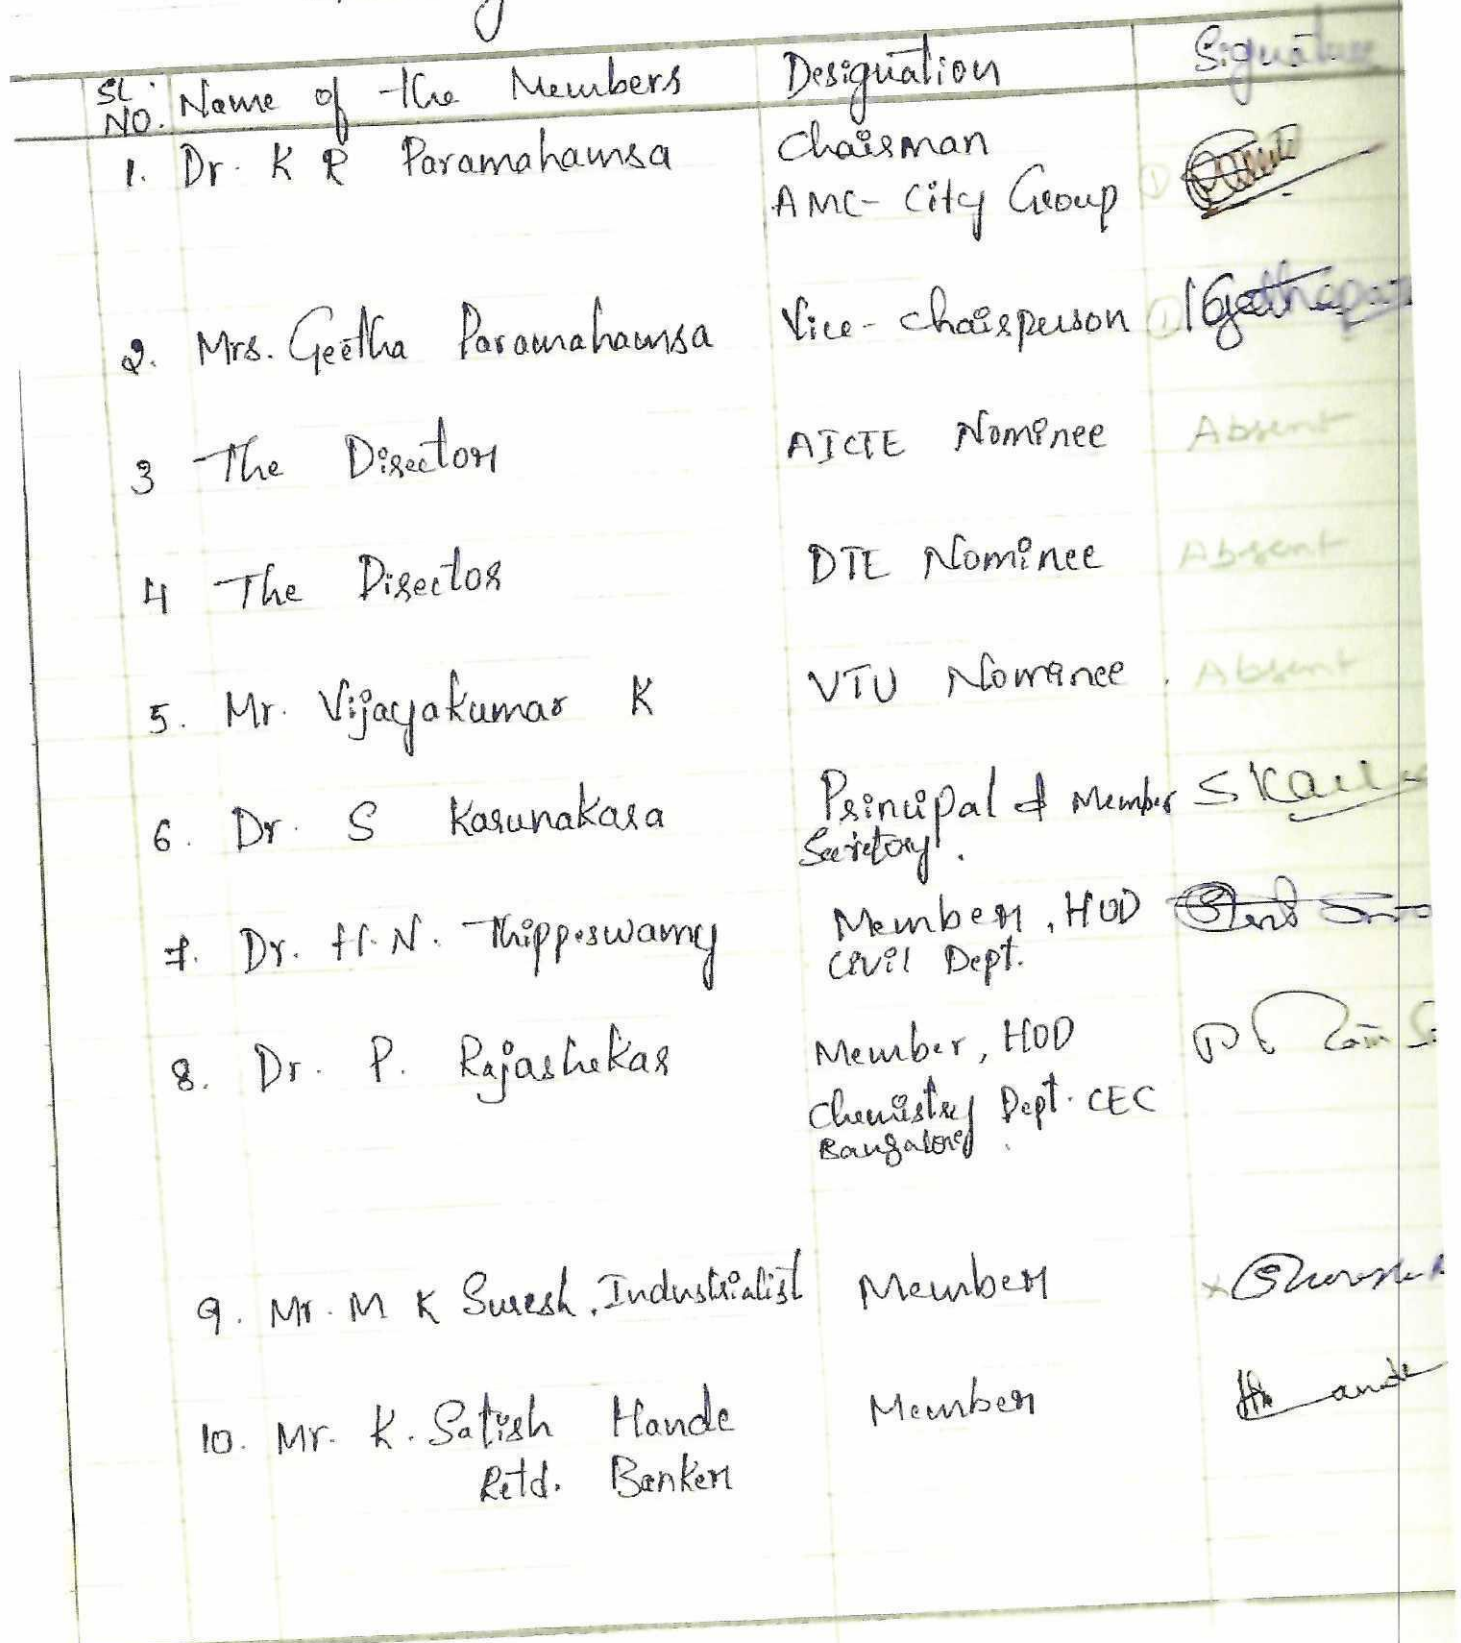 SL. NO. Name of the Members Designation Signature
1. Dr. K R Paramahamsa Chairman
AMC- City Group
2. Mrs. Geetha Paramahamsa Vice- Chairperson
3 The Director AICTE Nominee Absent
4 The Director DTE Nominee Absent
5. Mr. Vijayakumar K VTU Nominee. Absent
6. Dr. S Karunakara Principal & Member
Secretory.
7. Dr. H.N. Thippeswamy Member, HOD
Civil Dept.
8. Dr. P. Rajashekar Member, HOD
Chemistry Dept. CEC
Bangalore.
9. Mr. M K Suresh, Industrialist Member
10. Mr. K. Satish Hande Member
Retd. Banker